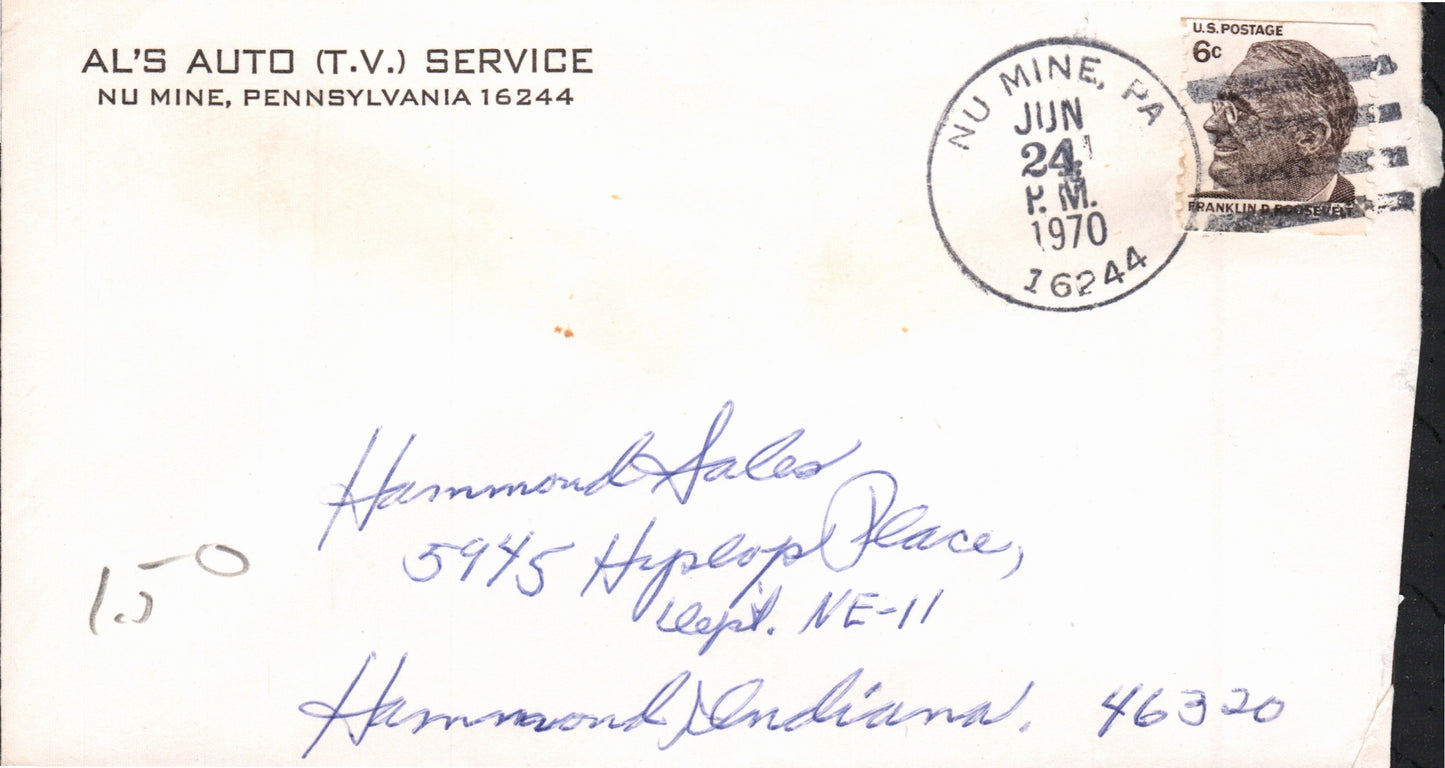 AL'S AUTO (T.V.) SERVICE
NU MINE, PENNSYLVANIA 16244
NU MINE, PA
JUN
24
P.M.
1970
16244
U.S. POSTAGE
6c
FRANKLIN D. ROOSEVELT
Hammond Sales
5945 Hyslop Place,
Dept. NE-11
Hammond, Indiana. 46320
1.50